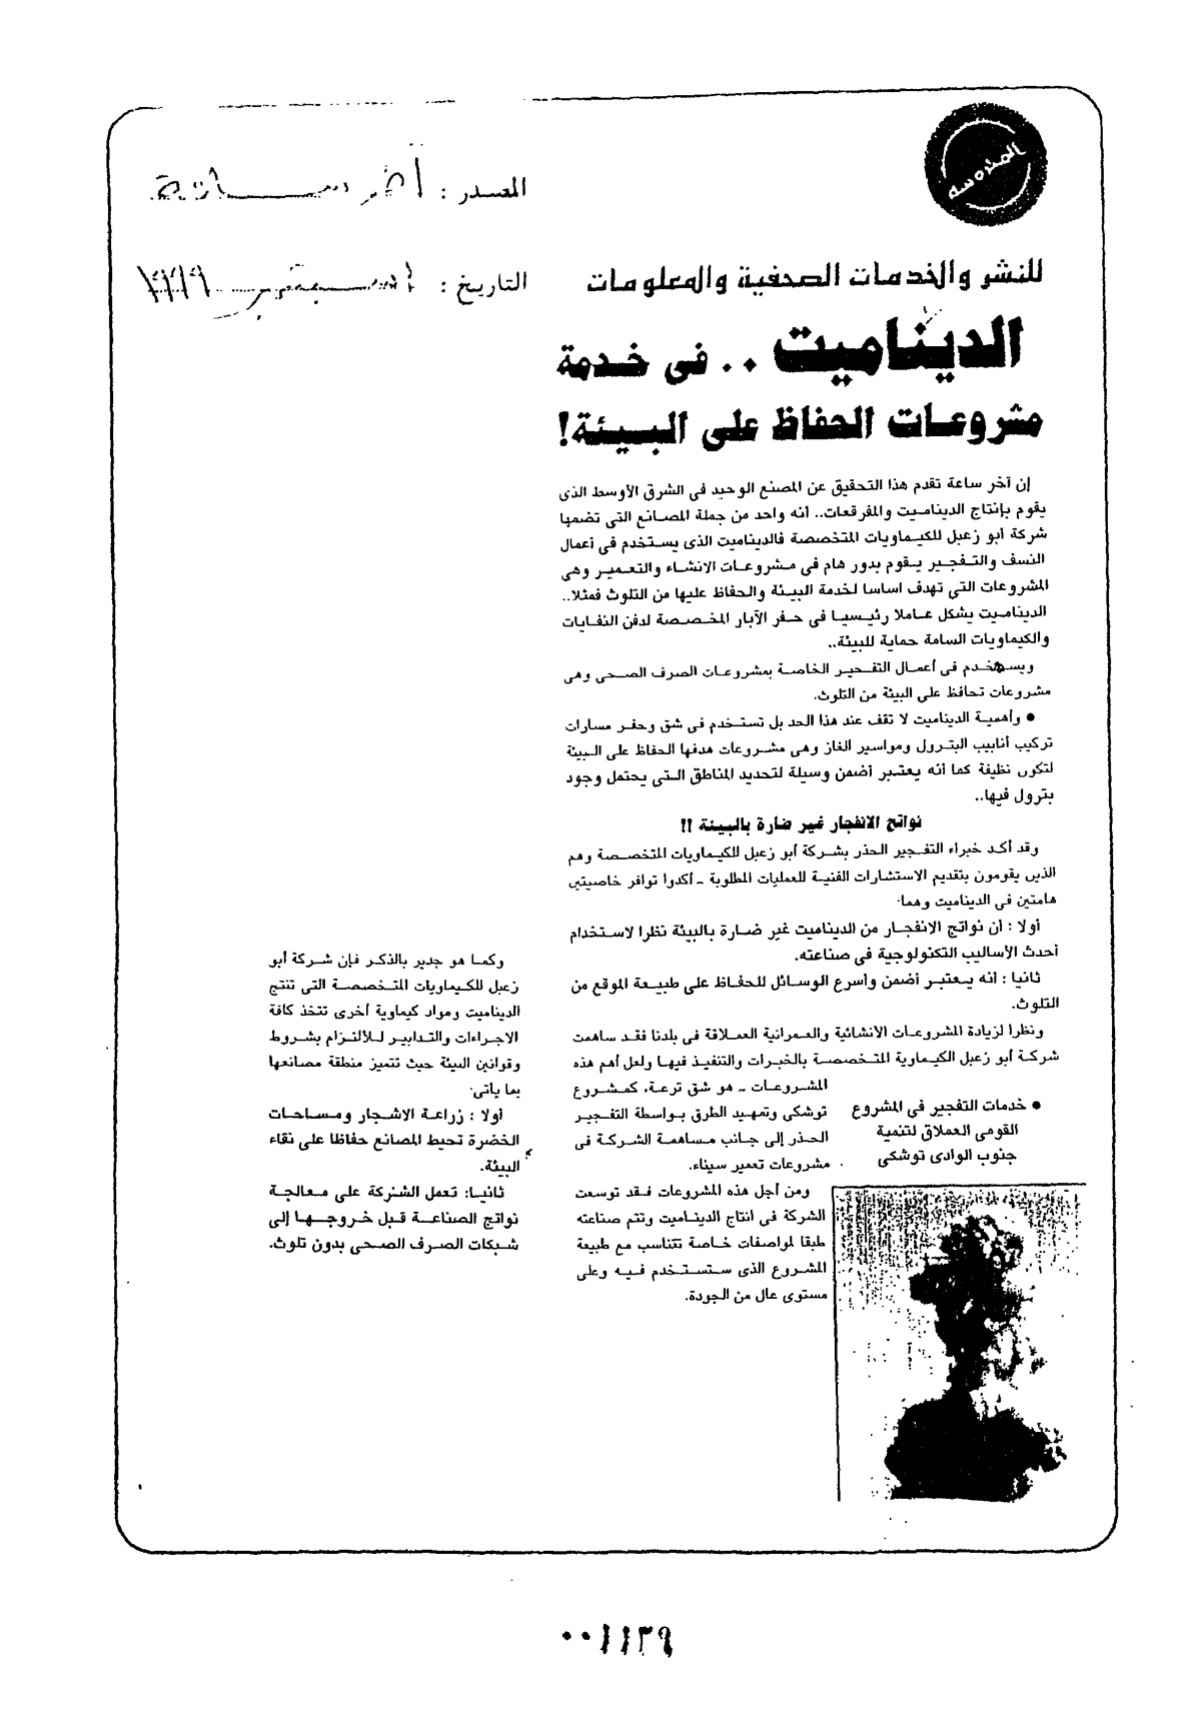 المحروسة
المصدر : آخر ساعة
للنشر والخدمات الصحفية والمعلومات
التاريخ : ١ سبتمبر ١٩٩٩
الديناميت .. فى خدمة
مشروعات الحفاظ على البيئة!
إن آخر ساعة تقدم هذا التحقيق عن المصنع الوحيد فى الشرق الأوسط الذى
يقوم بإنتاج الديناميت والمفرقعات.. أنه واحد من جملة المصانع التى تضمها
شركة أبو زعبل للكيماويات المتخصصة فالديناميت الذى يستخدم فى أعمال
النسف والتفجير يقوم بدور هام فى مشروعات الانشاء والتعمير وهى
المشروعات التى تهدف اساسا لخدمة البيئة والحفاظ عليها من التلوث فمثلا..
الديناميت يشكل عاملا رئيسيا فى حفر الآبار المخصصة لدفن النفايات
والكيماويات السامة حماية للبيئة..
ويستخدم فى أعمال التفجير الخاصة بمشروعات الصرف الصحى وهى
مشروعات تحافظ على البيئة من التلوث.
● وأهمية الديناميت لا تقف عند هذا الحد بل تستخدم فى شق وحفر مسارات
تركيب أنابيب البترول ومواسير الغاز وهى مشروعات هدفها الحفاظ على البيئة
لتكون نظيفة كما أنه يعتبر أضمن وسيلة لتحديد المناطق التى يحتمل وجود
بترول فيها..
نواتج الانفجار غير ضارة بالبيئة !!
وقد أكد خبراء التفجير الحذر بشركة أبو زعبل للكيماويات المتخصصة وهم
الذين يقومون بتقديم الاستشارات الفنية للعمليات المطلوبة ـ أكدوا توافر خاصيتين
هامتين فى الديناميت وهما·
أولا : أن نواتج الانفجار من الديناميت غير ضارة بالبيئة نظرا لاستخدام
أحدث الأساليب التكنولوجية فى صناعته.
ثانيا : انه يعتبر أضمن وأسرع الوسائل للحفاظ على طبيعة الموقع من
التلوث.
ونظرا لزيادة المشروعات الانشائية والعمرانية العملاقة فى بلدنا فقد ساهمت
شركة أبو زعبل الكيماوية المتخصصة بالخبرات والتنفيذ فيها ولعل أهم هذه
المشروعات ـ هو شق ترعة، كمشروع
توشكى وتمهيد الطرق بواسطة التفجير
الحذر إلى جانب مساهمة الشركة فى
مشروعات تعمير سيناء.
ومن أجل هذه المشروعات فقد توسعت
الشركة فى انتاج الديناميت وتتم صناعته
طبقا لمواصفات خاصة تتناسب مع طبيعة
المشروع الذى ستستخدم فيه وعلى
مستوى عال من الجودة.
● خدمات التفجير فى المشروع
القومى العملاق لتنمية
جنوب الوادى توشكى
وكما هو جدير بالذكر فإن شركة أبو
زعبل للكيماويات المتخصصة التى تنتج
الديناميت ومواد كيماوية أخرى تتخذ كافة
الاجراءات والتدابير للالتزام بشروط
وقوانين البيئة حيث تتميز منطقة مصانعها
بما يأتى·
أولا : زراعة الاشجار ومساحات
الخضرة تحيط المصانع حفاظا على نقاء
البيئة.
ثانيا: تعمل الشركة على معالجة
نواتج الصناعة قبل خروجها إلى
شبكات الصرف الصحى بدون تلوث.
٠٠١١٣٩